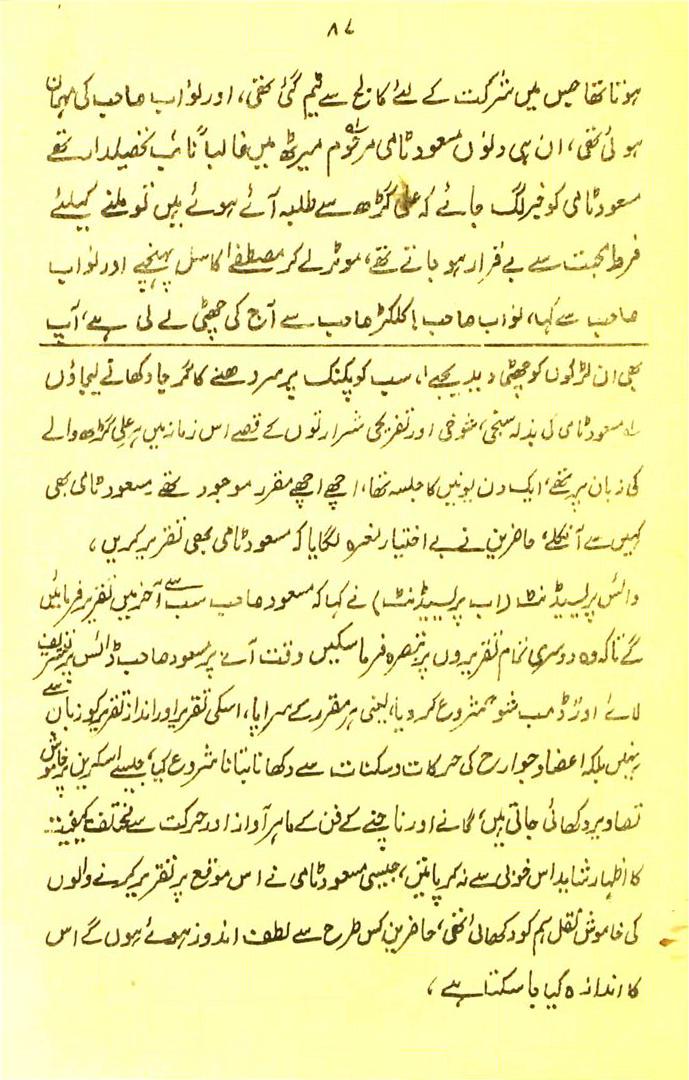 ۸۷
ہوتا تھا جس میں شرکت کے لئے کالج سے ٹیم گئی تھی، اور نواب صاحب کی مہمان
ہوئی تھی، ان ہی دنوں مسعود ٹامی مرحوم میرٹھ میں غالباً نائب تحصیلدار تھے
مسعود ٹامی کو خبر لگ جائے کہ علی گڑھ سے طلبہ آئے ہوئے ہیں تو ملنے کیلئے
فرط محبت سے بے قرار ہو جاتے تھے، موٹر لے کر مصطفےٰ کاسل پہنچے اور نواب
صاحب سے کہا، نواب صاحب! کلکٹر صاحب سے آج کی چھٹی لے لی ہے، آپ
بھی ان لڑکوں کو چھٹی دیدیجیے!، سب کو پکنک پر سردھنے کا گرجا دکھانے لیجاؤں
لہ مسعود ٹامی کی بذلہ سنجی، شوخی اور تفریحی شرارتوں کے قصے اس زمانہ میں ہر علی گڑھ والے
کی زبان پر تھے، ایک دن یونین کا جلسہ تھا، اچھے اچھے مقرر موجود تھے مسعود ٹامی بھی
کہیں سے آنکلے، حاضرین نے بے اختیار نعرہ لگایا کہ مسعود ٹامی بھی تقریر کریں،
وائس پریسیڈنٹ (اب پریسیڈنٹ) نے کہا کہ مسعود صاحب سب سے آخر میں تقریر فرمائیں
گے تاکہ وہ دوسری تمام تقریروں پر تبصرہ فرما سکیں وقت آنے پر مسعود صاحب ڈائس پر تشریف
لائے اور ڈمب شو شروع کر دیا، یعنی ہر مقرر کے سراپا، اسکی تقریر اور انداز تقریر کو زبان سے
نہیں بلکہ اعضا و جوارح کی حرکات و سکنات سے دکھانا بتانا شروع کیا، جیسے اسکرین پر خاموش
تصاویر دکھائی جاتی ہیں، گانے اور ناچنے کے فن کے ماہر آواز اور حرکت سے مختلف کیفیت
کا اظہار شاید اس خوبی سے نہ کر پائیں، جیسی مسعود ٹامی نے اس موقع پر تقریر کرنے والوں
کی خاموش نقل ہم کو دکھائی تھی، حاضرین کس طرح سے لطف اندوز ہوئے ہوں گے اس
کا اندازہ کیا جا سکتا ہے،